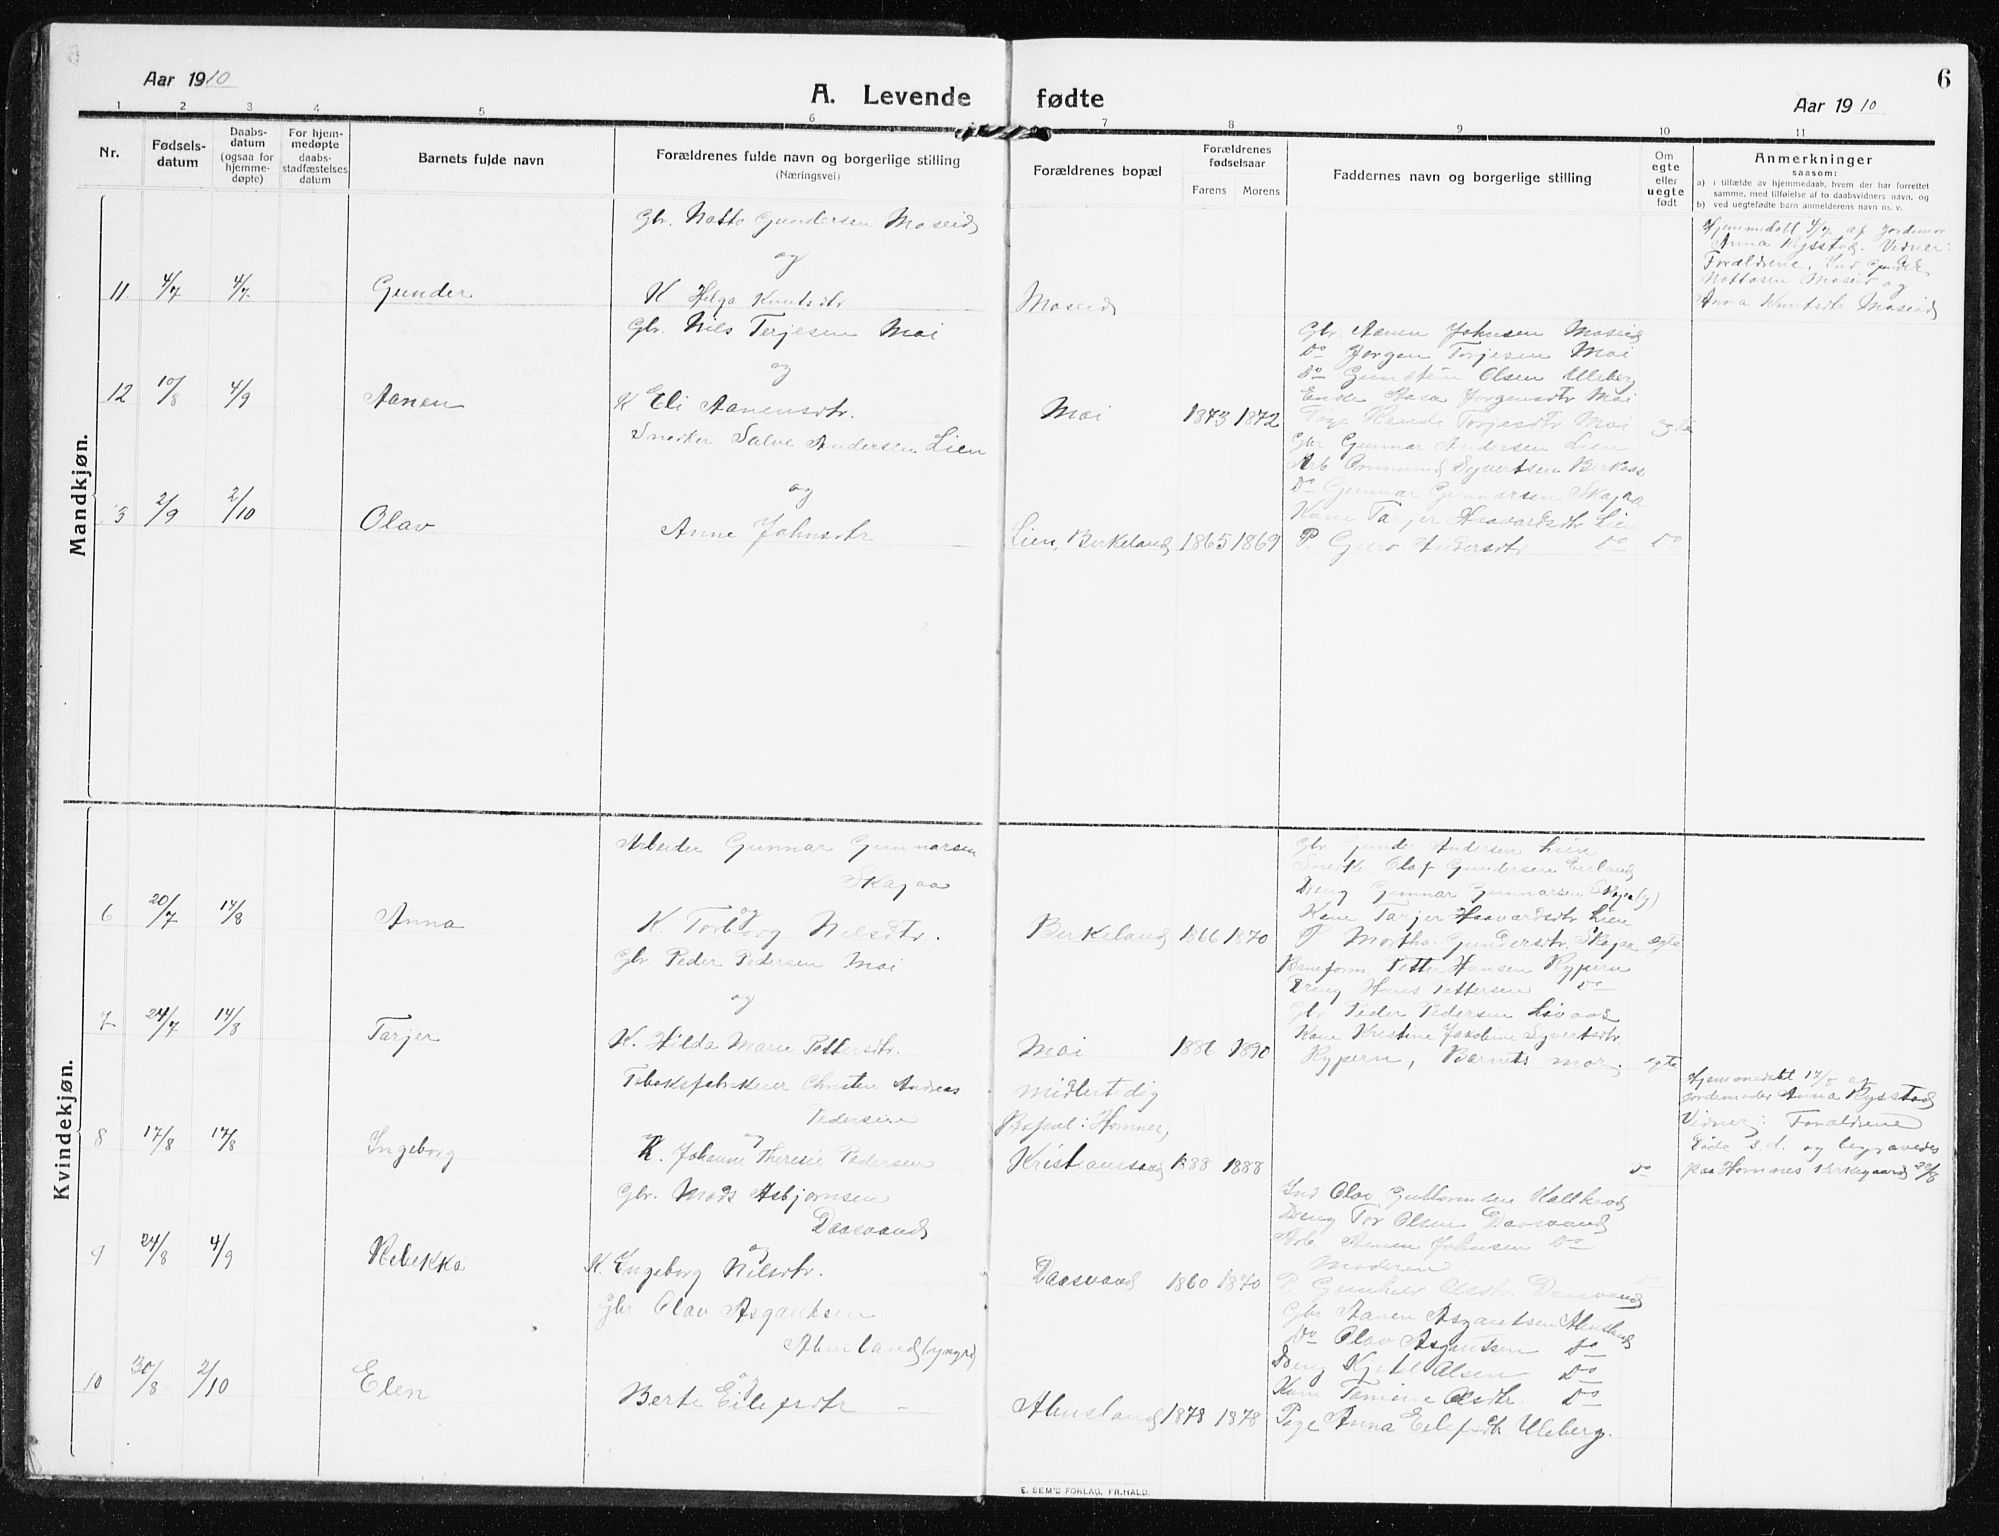 Aar 1910
A. Levende fødte
6
Aar 1910
1 2 3 4 5 6 7 8 9 10 11
Nr.
Fødsels-
datum
Daabs-
datum
(ogsaa for
hjemme-
døpte)
For hjem-
medøpte
daabs-
stadfæstelses
datum
Barnets fulde navn
Forældrenes fulde navn og borgerlige stilling
(Næringsvei)
Forældrenes bopæl
Forældrenes
fødselsaar
Farens Morens
Faddernes navn og borgerlige stilling
Om
egte
eller
uegte
født
Anmerkninger
saasom:
a) i tilfælde av hjemmedaab, hvem der har forrettet
samme, med tilføielse af to daabsvidners navn, og
b) ved uegtefødte barn anmelderens navn m. v.
Mandkjøn.
11. 4/7 4/7.
Gunder
Gbr. Notto Gundersen Moseid
og
K Helga Knutsdtr.
Moseid
Hjemmedøbt 4/7 af Jordemor
Anna Rysstad. Vidner:
Forældrene, Ind
Nottosen Moseid og
Anna Knutsdtr Moseid
12 10/8 4/9
Aanen
Gbr. Nils Terjesen Moi
og
K. Eli Aanensdtr.
Moi 1873 1872
Gbr. Aanen Johnsen Moseid
Do Jørgen Torjesen Moi
Do Gunstein Olsen Uleberg
Enke Aasa Jørgensdtr Moi
Torjesdtr Moi
egte
3 2/9 2/10
Olav
Snedker Salve Andersen Lien
og
Anne Johnsdtr
Lien, Birkeland 1865 1869
Gbr Gunnar Andersen Lien
Arb Ommund Syvertsen Berkaas
Do Gunnar Gunnarsen Skajaa
Kone Tarjer Haavardsdtr Lien
P. Guro Andersdtr Do
Do
Kvindekjøn.
6 20/7 14/8
Anna
Arbeider Gunnar Gunnarsen
Skajaa
og
K. Torborg Nilsdtr.
Berkeland 1866 1870
Gbr Andersen Lien
Snedker Olaf Gundersen Eieland
Dreng Gunnar Gunnarsen Skajaa (y)
Kone Tarjer Haavardsdtr Lien
P Martha Gundersdtr. Skajaa
egte
7 24/7 14/8
Tarjer
Gbr. Peder Pedersen Moi
og
K. Hilda Marie Pettersdtr.
Moi 1886 1890
Baneform. Petter Hansen Rypern
Dreng Hans Pettersen Do
Gbr Peder Pedersen Livaas
Kone Kristine Jakobine Syvertsdtr.
Rypern, Barnets mor.
egte
8 17/8 17/8
Ingeborg
Tobaksfabrikeier Christen Andreas
Pedersen
og
K. Johanne Theresie Pedersen
midlertidig
Bopæl: Homnes,
Kristianssand 1888 1888
Do
Hjemmedøbt 17/8 af
jordemoder Anna Rysstad
Vidner: Forældrene
Døde s.d. og begravedes
paa Homnes kirkegaard 20/8
9 24/8 4/9
Rebekka
Gbr. Mads Asbjørnsen
Daasvand
og
K. Ingeborg Nilsdtr.
Daasvand 1860 1870
Ind Olav Guttormsen
Dreng Tor Olsen Daasvand
Arb. Aanen Johnsen Do
Moderen
P. Olsdtr. Daasvand
Do
10 30/8 2/10
Elen
Gbr Olav Asgautsen
Abusland (yngre)
og
Berte Eilefsdtr
Abusland 1878 1878
Gbr Aanen Asgautsen Abusland
Do Olav Asgautsen Do
Dreng Kjetil Olsen Do
Kone Tomine Olsdtr. Do
Pige Anna Eilefsdtr Uleberg.
E. SEM'S FORLAG, FR.HALD.